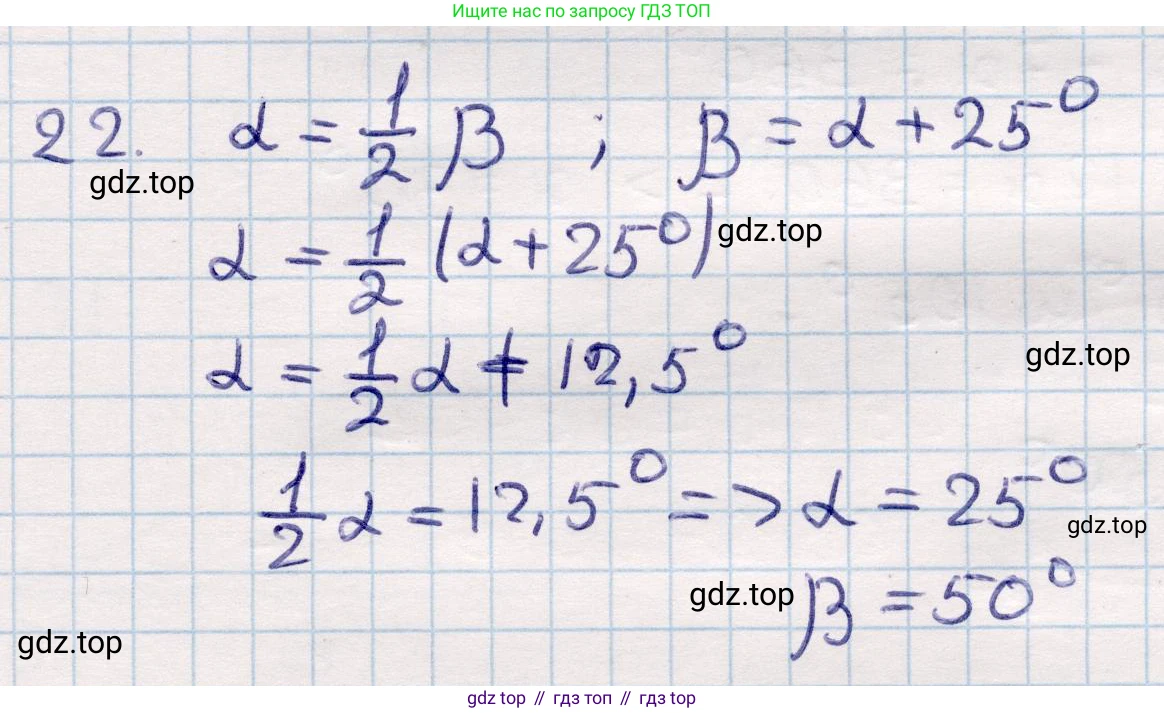 Ищите нас по запросу ГДЗ ТОП
22. α = 1/2 β ; β = α + 25⁰
gdz.top
α = 1/2 (α + 25⁰) gdz.top
α = 1/2 α + 12,5⁰
gdz.top
1/2 α = 12,5⁰ => α = 25⁰
gdz.top
gdz.top β = 50⁰
gdz.top
gdz top // гдз топ // гдз top